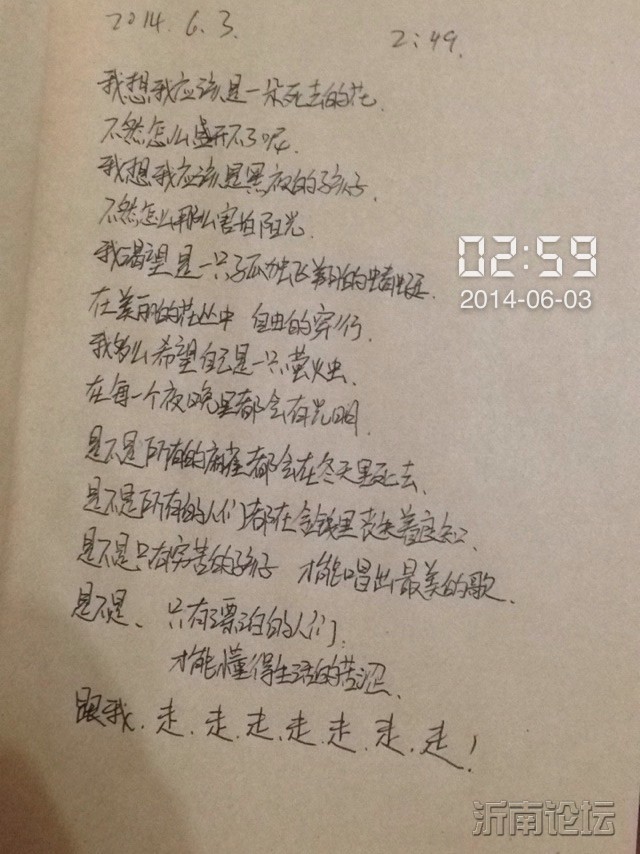 2014.6.3.
2:49.
我想我应该是一朵死去的花.
不然怎么盛开不了呢.
我想我应该是黑夜的孩子.
不然怎么那么害怕阳光.
我渴望是一只孤独飞翔的蜻蜓.
02:59
2014-06-03
在美丽的花丛中 自由的穿行.
我多么希望自己是一只萤火虫.
在每一个夜晚里都会有光明.
是不是所有的麻雀都会在冬天里死去.
是不是所有的人们都在金钱里丧失着良知.
是不是只有穷苦的孩子 才能唱出最美的歌.
是不是、只有漂泊的人们.
才能懂得生活的苦涩.
跟我.走.走.走.走.走.走.走!
沂南论坛